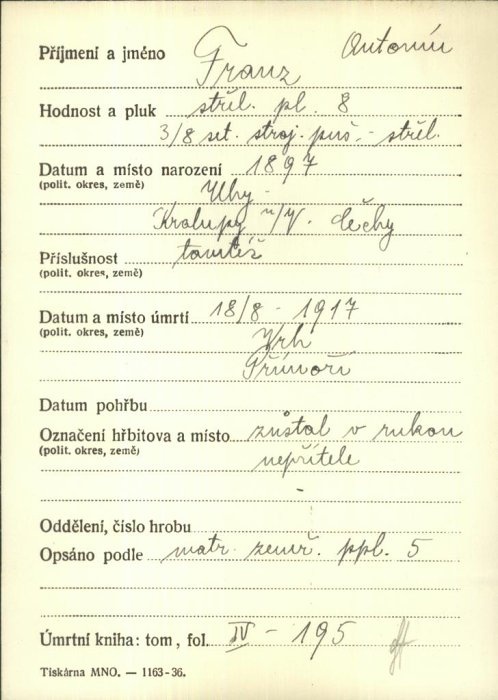 Příjmení a jméno Franz Antonín
Hodnost a pluk střel. pl. 8
3/8 set. stroj. puš. - střel.
Datum a místo narození 1897
(polit. okres, země)
Uhy -
Kralupy n/V. Čechy
Příslušnost tamtéž
(polit. okres, země)
Datum a místo úmrtí 18/8 - 1917
(polit. okres, země)
Vrh
Přímoří
Datum pohřbu
Označení hřbitova a místo zůstal v rukou
(polit. okres, země)
nepřítele
Oddělení, číslo hrobu
Opsáno podle matr. zemř. ppl. 5
Úmrtní kniha: tom, fol. IV - 195
Tiskárna MNO. — 1163-36.